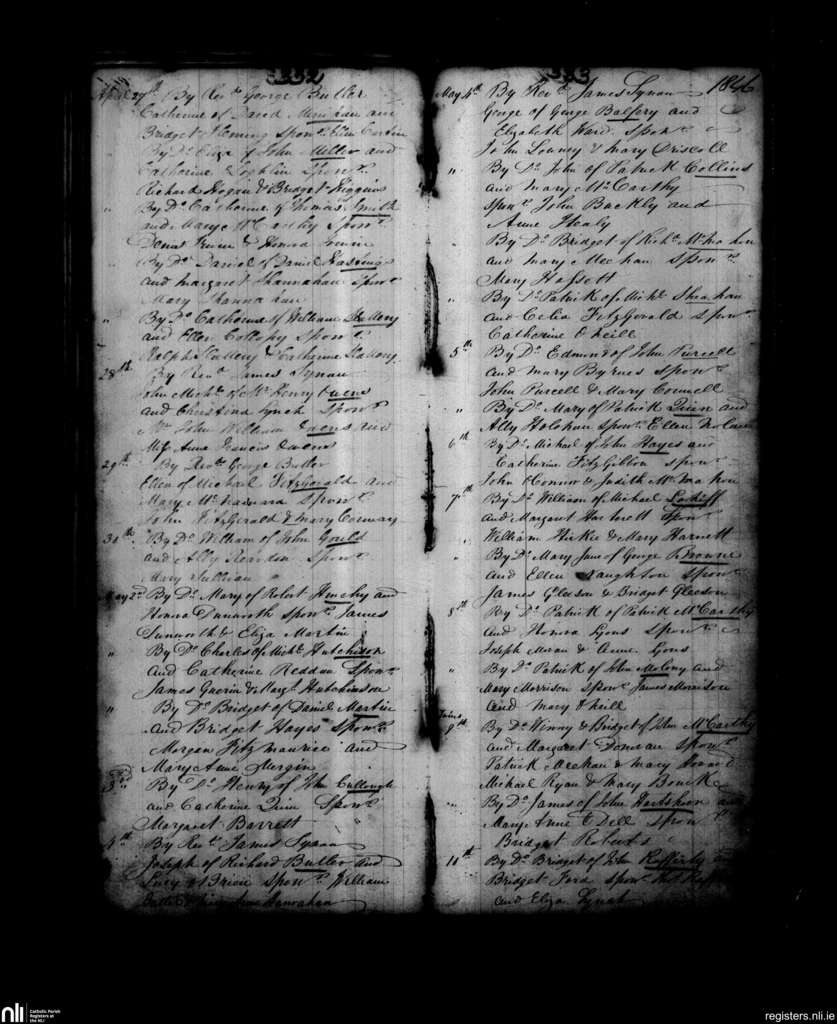 April 27th By Revd. George Butler
Catherine of David and
Bridget Spons. Ellen
By Do. Eliza of John Miller and
Catherine Spons.
Richard Hogan & Bridget Higgins
" By Do. Catherine of Thomas Smith
and Mary McCarthy Spons.
Denis & Honora
By Do. Daniel of Daniel Hastings
and Margaret Shannahan Spons.
Mary Shannahan
" By Do. Catherine of William Slattery
and Ellen Collopy Spons.
Ralph Slattery & Catherine Slattery
28th By Revd. James Synan
John Michl. of Mr. Henry Owens
and Christina Lynch Spons.
Mr. John William Owens and
Miss Anne Francis Owens
29th By Revd. George Butler
Ellen of Michael FitzGerald and
Mary McNamara Spons.
John FitzGerald & Mary Conway
30th By Do. William of John Gould
and Ally Reardon Spons.
Mary Sullivan "
May 2d By Do. Mary of Robert and
Honora Dunworth Spons. James
Dunworth & Eliza Martin
" By Do. Charles of Michl. Hutchison
and Catherine Reddan Spons.
James Guerin & Margt. Hutchinson
" By Do. Bridget of Daniel Martin
and Bridget Hayes Spons.
Morgan Fitzmaurice and
Mary Anne
3rd By Do. Henry of John Cullough
and Catherine Quin Spons.
Margaret Barrett "
4th By Revd. James Synan
Joseph of Richard Butler and
Lucy O'Brien Spons. William
Butler & Anne Hanrahan
333
1846
May 4th By Revd. James Synan
George of George Balfery and
Elizabeth Ward. Spons.
John Lowney & Mary Driscoll
" By Do. John of Patrick Collins
and Mary McCarthy
Spons. John Buckly and
Anne Healy
By Do. Bridget of Richd. McMahon
and Mary Meehan Spons.
Mary Hassett
" By Do. Patrick of Michl. Sheahan
and Celia FitzGerald Spons.
Catherine O'Neill
5th By Do. Edmund of John Purcell
and Mary Byrnes Spons.
John Purcell & Mary Connell
" By Do. Mary of Patrick Quin and
Ally Holohan Spons. Ellen
6th By Do. Michael of John Hayes and
Catherine FitzGibbon Spons.
John O'Connor & Judith McMahon
7th By Do. William of Michael
and Margaret Hartnett Spons.
William Hickie & Mary Harnett
" By Do. Mary Jane of George Browne
and Ellen Naughton Spons.
James Gleeson & Bridget Gleeson
8th By Do. Patrick of Patrick McCarthy
and Honora Lyons Spons.
Joseph Moran & Anne Lyons
" By Do. Patrick of John Molony and
Mary Morrison Spons. James Morrison
and Mary O'Neill
Twins
9th By Do. Winny & Bridget of John McCarthy
and Margaret Donovan Spons.
Patrick Meehan & Mary
Michael Ryan & Mary Bourke
" By Do. James of John and
Mary Anne O'Dell Spons.
Bridget Roberts
10th By Do. Bridget of John Rafferty and
Bridget Ford Spons.
and Eliza Lynch
nli
Catholic Parish
Registers at
the NLI
registers.nli.ie